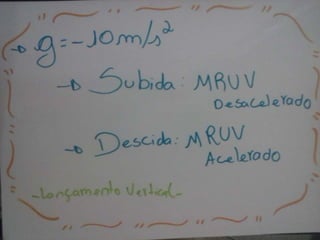 → g = -10 m/s²
→ Subida: MRUV
Desacelerado
→ Descida: MRUV
Acelerado
-Lançamento Vertical-